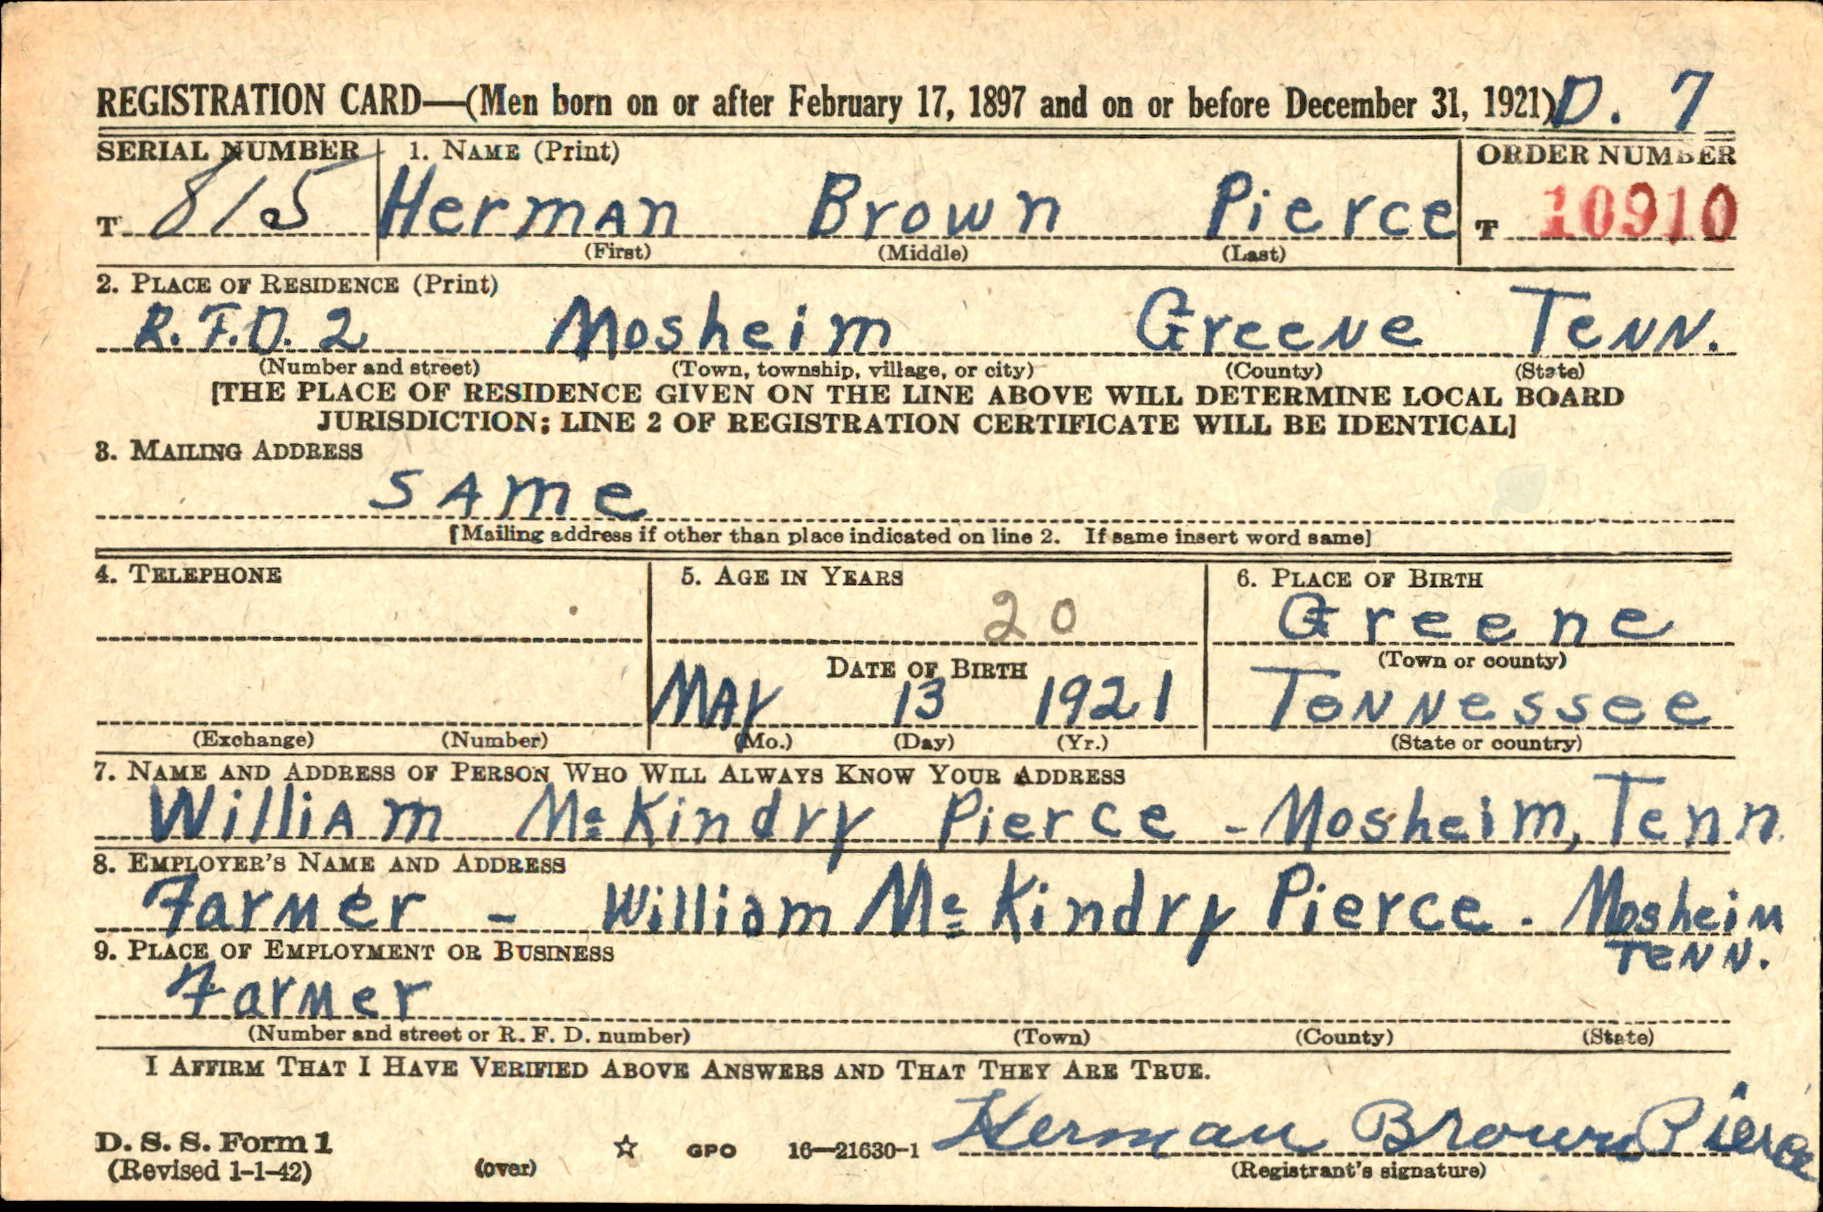 REGISTRATION CARD—(Men born on or after February 17, 1897 and on or before December 31, 1921) D. 7
SERIAL NUMBER 1. NAME (Print) ORDER NUMBER
T 815 Herman Brown Pierce T 10910
(First) (Middle) (Last)
2. PLACE OF RESIDENCE (Print)
R.F.D. 2 Mosheim Greene Tenn.
(Number and street) (Town, township, village, or city) (County) (State)
[THE PLACE OF RESIDENCE GIVEN ON THE LINE ABOVE WILL DETERMINE LOCAL BOARD
JURISDICTION; LINE 2 OF REGISTRATION CERTIFICATE WILL BE IDENTICAL]
3. MAILING ADDRESS
SAme
[Mailing address if other than place indicated on line 2. If same insert word same]
4. TELEPHONE 5. AGE IN YEARS 6. PLACE OF BIRTH
20 Greene
(Town or county)
DATE OF BIRTH
MAy 13 1921 Tennessee
(Exchange) (Number) (Mo.) (Day) (Yr.) (State or country)
7. NAME AND ADDRESS OF PERSON WHO WILL ALWAYS KNOW YOUR ADDRESS
William McKindry Pierce - Mosheim, Tenn.
8. EMPLOYER'S NAME AND ADDRESS
Farmer - William McKindry Pierce. Mosheim
Tenn.
9. PLACE OF EMPLOYMENT OR BUSINESS
Farmer
(Number and street or R. F. D. number) (Town) (County) (State)
I AFFIRM THAT I HAVE VERIFIED ABOVE ANSWERS AND THAT THEY ARE TRUE.
Herman Brown Pierce
D. S. S. Form 1 GPO 16—21630-1
(Revised 1-1-42) (over) (Registrant's signature)